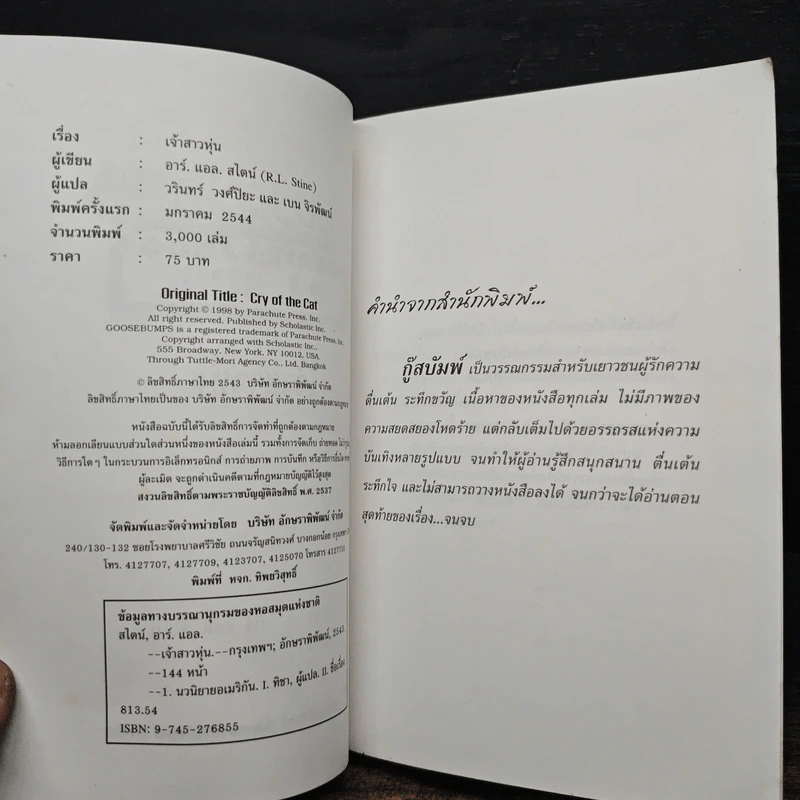 เรื่อง : เจ้าสาวหุ่น
ผู้เขียน : อาร์. แอล. สไตน์ (R.L. Stine)
ผู้แปล : วรินทร์ วงศ์ปิยะ และ เบน จิรพัฒน์
พิมพ์ครั้งแรก : มกราคม 2544
จำนวนพิมพ์ : 3,000 เล่ม
ราคา : 75 บาท
Original Title : Cry of the Cat
Copyright © 1998 by Parachute Press, Inc.
All right reserved. Published by Scholastic Inc.
GOOSEBUMPS is a registered trademark of Parachute Press, Inc.
Copyright arranged with Scholastic Inc.,
555 Broadway, New York, NY 10012, USA.
Through Tuttle-Mori Agency Co., Ltd. Bangkok
© ลิขสิทธิ์ภาษาไทย 2543 บริษัท อักษราพิพัฒน์ จำกัด
ลิขสิทธิ์ภาษาไทยเป็นของ บริษัท อักษราพิพัฒน์ จำกัด อย่างถูกต้องตามกฎหมาย
หนังสือฉบับนี้ได้รับลิขสิทธิ์การจัดทำที่ถูกต้องตามกฎหมาย
ห้ามลอกเลียนแบบส่วนใดส่วนหนึ่งของหนังสือเล่มนี้ รวมทั้งการจัดเก็บ ถ่ายทอด ไม่ว่ารูป
วิธีการใดๆ ในกระบวนการอิเล็กทรอนิกส์ การถ่ายภาพ การบันทึก หรือวิธีการอื่นใด
ผู้ละเมิด จะถูกดำเนินคดีตามที่กฎหมายบัญญัติไว้สูงสุด
สงวนลิขสิทธิ์ตามพระราชบัญญัติลิขสิทธิ์ พ.ศ. 2537
จัดพิมพ์และจัดจำหน่ายโดย บริษัท อักษราพิพัฒน์ จำกัด
240/130-132 ซอยโรงพยาบาลศรีวิชัย ถนนจรัญสนิทวงศ์ บางกอกน้อย
โทร. 4127707, 4127709, 4123707, 4125070 โทรสาร
พิมพ์ที่ หจก. ทิพยวิสุทธิ์
ข้อมูลทางบรรณานุกรมของหอสมุดแห่งชาติ
สไตน์, อาร์. แอล.
--เจ้าสาวหุ่น.--กรุงเทพฯ; อักษราพิพัฒน์, 2543.
--144 หน้า
--1. นวนิยายอเมริกัน. I. ทิชา, ผู้แปล. II. ชื่อเรื่อง
813.54
ISBN: 9-745-276855
คำนำจากสำนักพิมพ์...
กู๊สบัมพ์ เป็นวรรณกรรมสำหรับเยาวชนผู้รักความ
ตื่นเต้น ระทึกขวัญ เนื้อหาของหนังสือทุกเล่ม ไม่มีภาพของ
ความสยดสยองโหดร้าย แต่กลับเต็มไปด้วยอรรถรสแห่งความ
บันเทิงหลายรูปแบบ จนทำให้ผู้อ่านรู้สึกสนุกสนาน ตื่นเต้น
ระทึกใจ และไม่สามารถวางหนังสือลงได้ จนกว่าจะได้อ่านตอน
สุดท้ายของเรื่อง...จนจบ